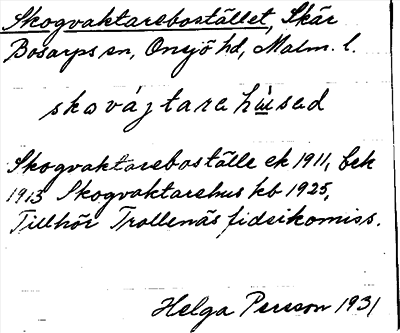 Skogvaktarebostället, Skär
Bosarps sn, Onsjö hd, Malm. l.
skovájtarehu̇sed
Skogvaktareboställe ek 1911, bek
1913 Skogvaktarehus kb 1925,
Tillhör Trollenäs fideikomiss.
Helga Persson 1931